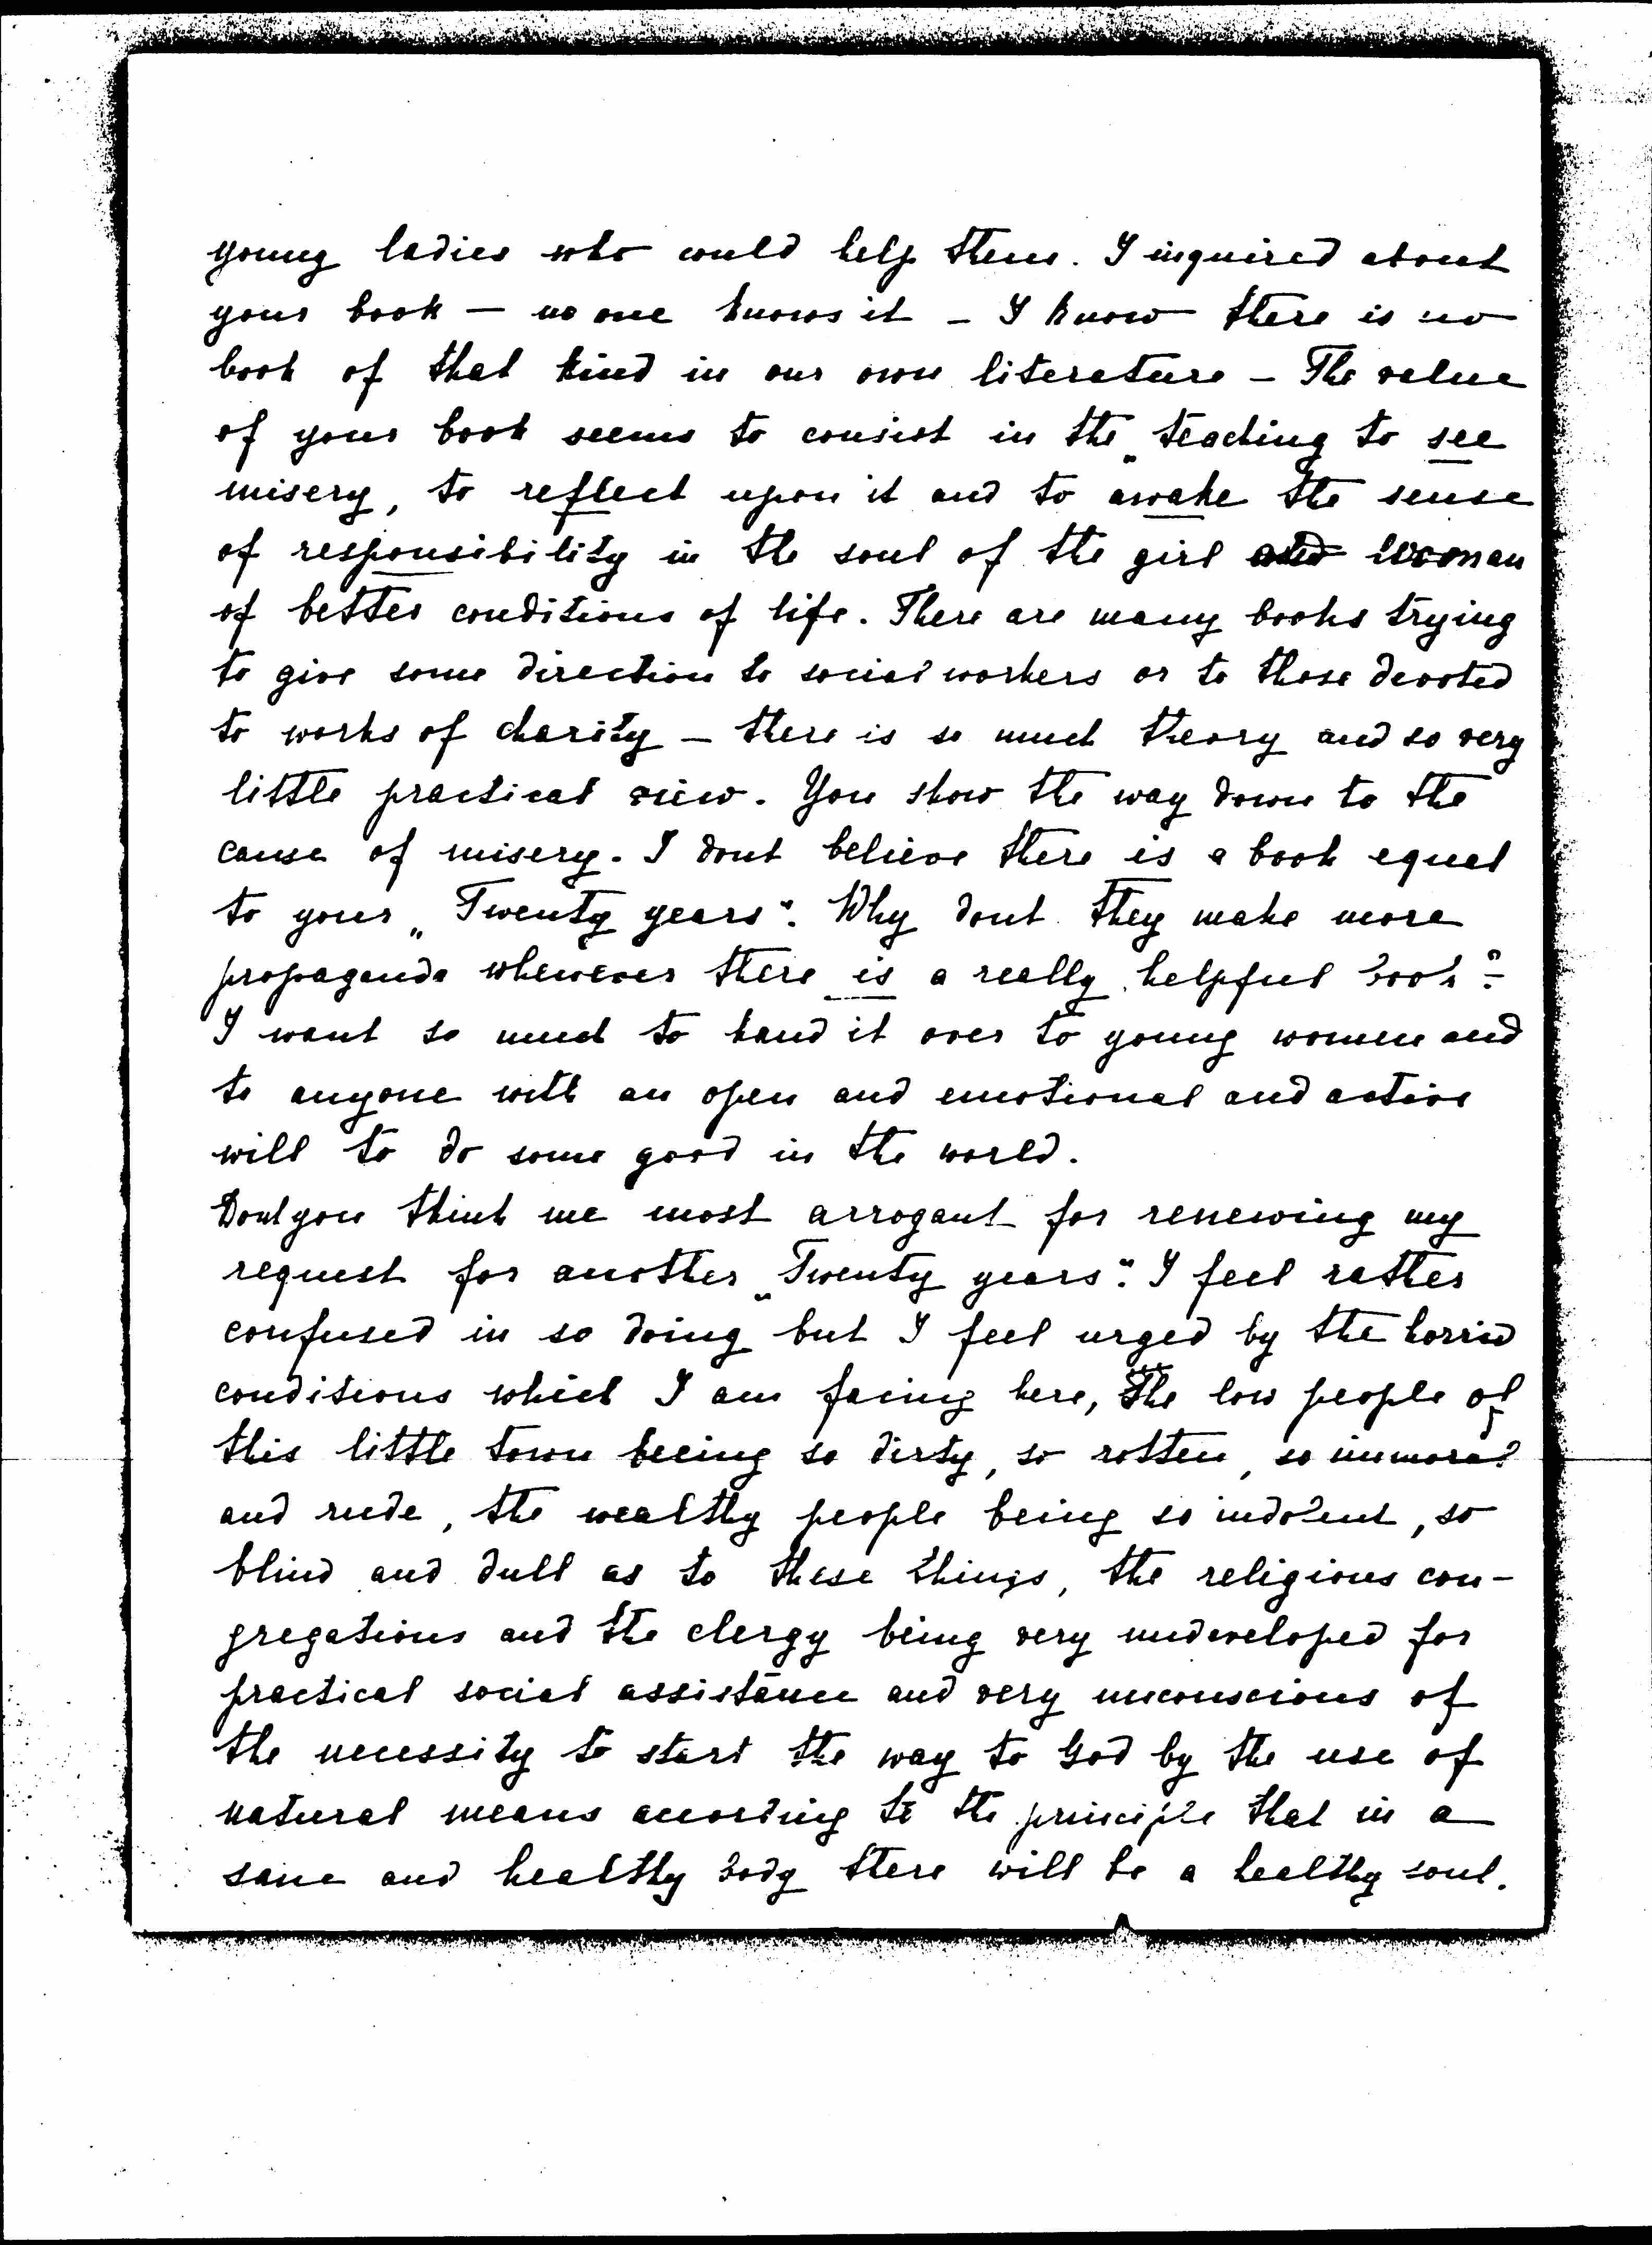 young ladies who could help them. I inquired about
your book — no one knows it — I know there is no
book of that kind in our own literature — The value
of your book seems to consist in the „teaching to see
misery, to reflect upon it and to awake the sense
of responsibility in the soul of the girl and woman
of better conditions of life. There are many books trying
to give some direction to social workers or to those devoted
to works of charity — there is so much theory and so very
little practical view. You show the way down to the
cause of misery. I dont believe there is a book equal
to your „Twenty years“. Why dont they make more
propaganda whenever there is a really helpful book?
I want so much to hand it over to young women and
to anyone with an open and emotional and active
will to do some good in the world.
Dont you think me most arrogant for renewing my
request for another „Twenty years“. I feel rather
confused in so doing but I feel urged by the horrid
conditions which I am facing here, the low people of
this little town beeing so dirty, so rotten, so immoral
and rude, the wealthy people being so indolent, so
blind and dull as to these things, the religious con-
gregations and the clergy being very undeveloped for
practical social assistance and very unconscious of
the necessity to start the way to God by the use of
natural means according to the principle that in a
sane and healthy body there will be a healthy soul.